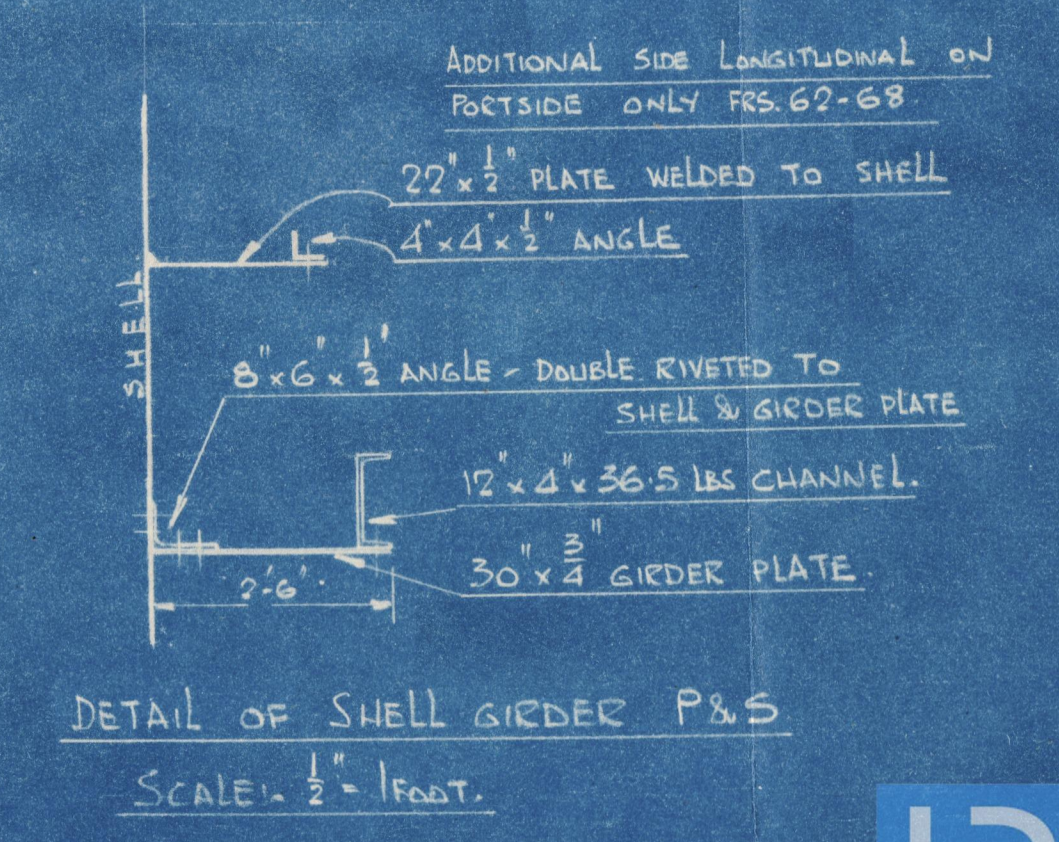 ADDITIONAL SIDE LONGITUDINAL ON
PORTSIDE ONLY FRS. 62-68.
22" x 1/2" PLATE WELDED TO SHELL
4" x 4" x 1/2" ANGLE
SHELL
8" x 6" x 1/2' ANGLE - DOUBLE RIVETED TO
SHELL & GIRDER PLATE
12" x 4" x 36.5 LBS CHANNEL.
30" x 3/4" GIRDER PLATE.
2'-6".
DETAIL OF SHELL GIRDER P & S
SCALE:- 1/2" = 1 FOOT.